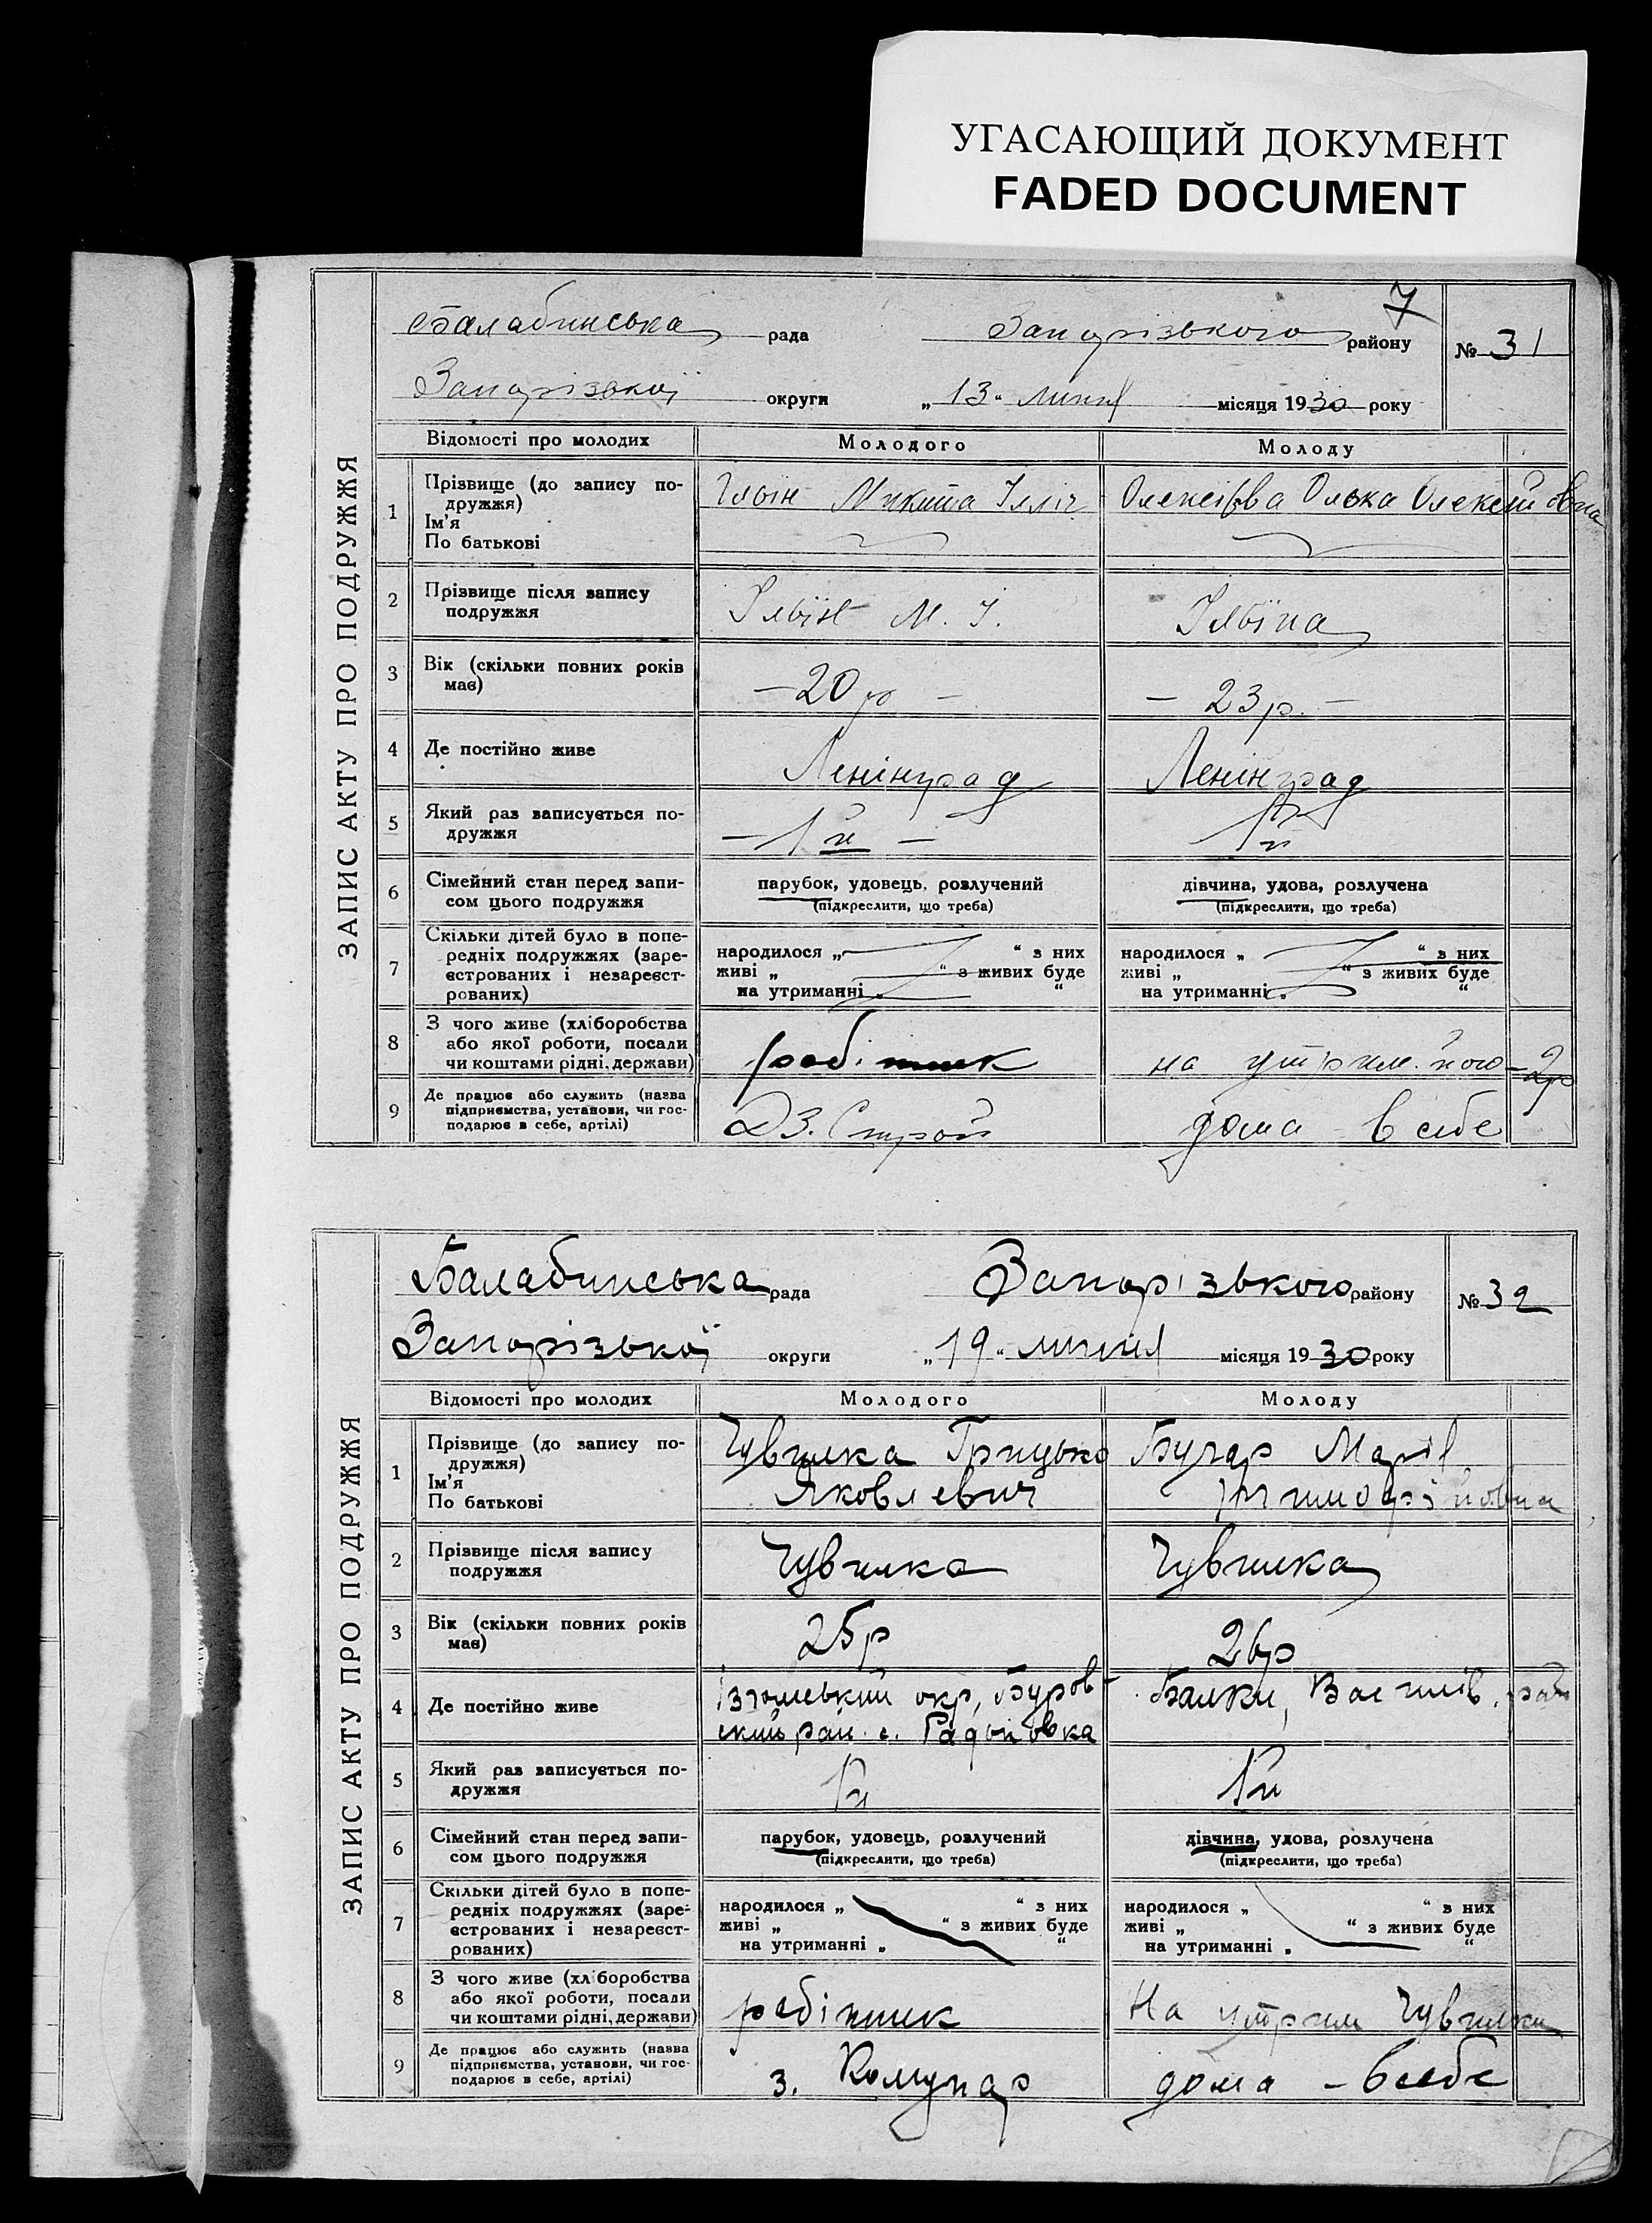 УГАСАЮЩИЙ ДОКУМЕНТ
FADED DOCUMENT
7
Балабинська рада Запорізького району № 31
Запорізької округи „13“ липня місяця 1930 року
ЗАПИС АКТУ ПРО ПОДРУЖЖЯ
Відомості про молодих Молодого Молоду
1 Прізвище (до запису подружжя) Ім’я По батькові Ільїн Микита Ілліч Олексієва Олька Олексійовна
2 Прізвище після запису подружжя Ільїн М. І. Ільїна
3 Вік (скільки повних років має) –20 р – – 23 р. –
4 Де постійно живе Ленінград Ленінград
5 Який раз записується подружжя – 1й – 1й
6 Сімейний стан перед записом цього подружжя парубок, удовець, розлучений дівчина, удова, розлучена
(підкреслити, що треба) (підкреслити, що треба)
7 Скільки дітей було в попередніх подружжях (зареєстрованих і незареєстрованих) народилося „ “ з них народилося „ “ з них
живі „ “ з живих буде живі „ “ з живих буде
на утриманні „ “ на утриманні „ “
8 З чого живе (хліборобства або якої роботи, посади чи коштами рідні, держави) робітник на утрим.
9 Де працює або служить (назва підприємства, установи, чи господарює в себе, артілі) ДЗ. Строй дома в себе
Балабинська рада Запорізького району № 32
Запорізької округи „19“ липня місяця 1930 року
ЗАПИС АКТУ ПРО ПОДРУЖЖЯ
Відомості про молодих Молодого Молоду
1 Прізвище (до запису подружжя) Ім’я По батькові Чувилка Грицько Яковлевич Марія
2 Прізвище після запису подружжя Чувилка Чувилка
3 Вік (скільки повних років має) 25р 26р
4 Де постійно живе Ізюмський окр, Буровский рай. с. Балки, Василів. рай
5 Який раз записується подружжя 1й 1й
6 Сімейний стан перед записом цього подружжя парубок, удовець, розлучений дівчина, удова, розлучена
(підкреслити, що треба) (підкреслити, що треба)
7 Скільки дітей було в попередніх подружжях (зареєстрованих і незареєстрованих) народилося „ “ з них народилося „ “ з них
живі „ “ з живих буде живі „ “ з живих буде
на утриманні „ “ на утриманні „ “
8 З чого живе (хліборобства або якої роботи, посади чи коштами рідні, держави) робітник На утрим Чувилки
9 Де працює або служить (назва підприємства, установи, чи господарює в себе, артілі) з. Комунар дома – в себе